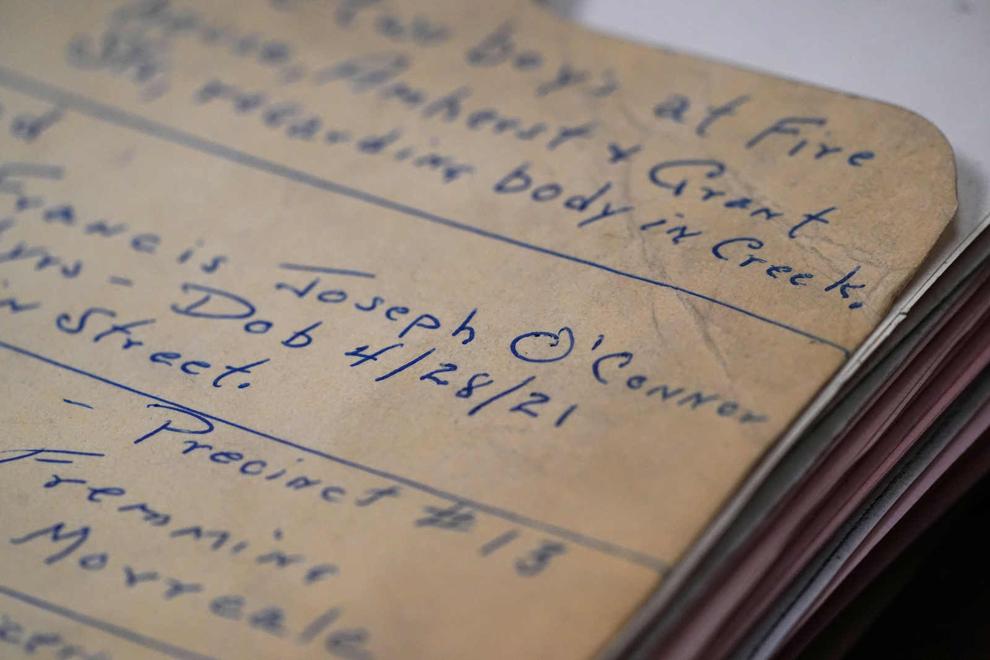 boys at Fire
House, Amherst & Grant
Sts, regarding body in Creek.
Francis Joseph O'Connor
yrs - Dob 4/28/21
in Street.
- Precinct #13
Fremming
Morreale